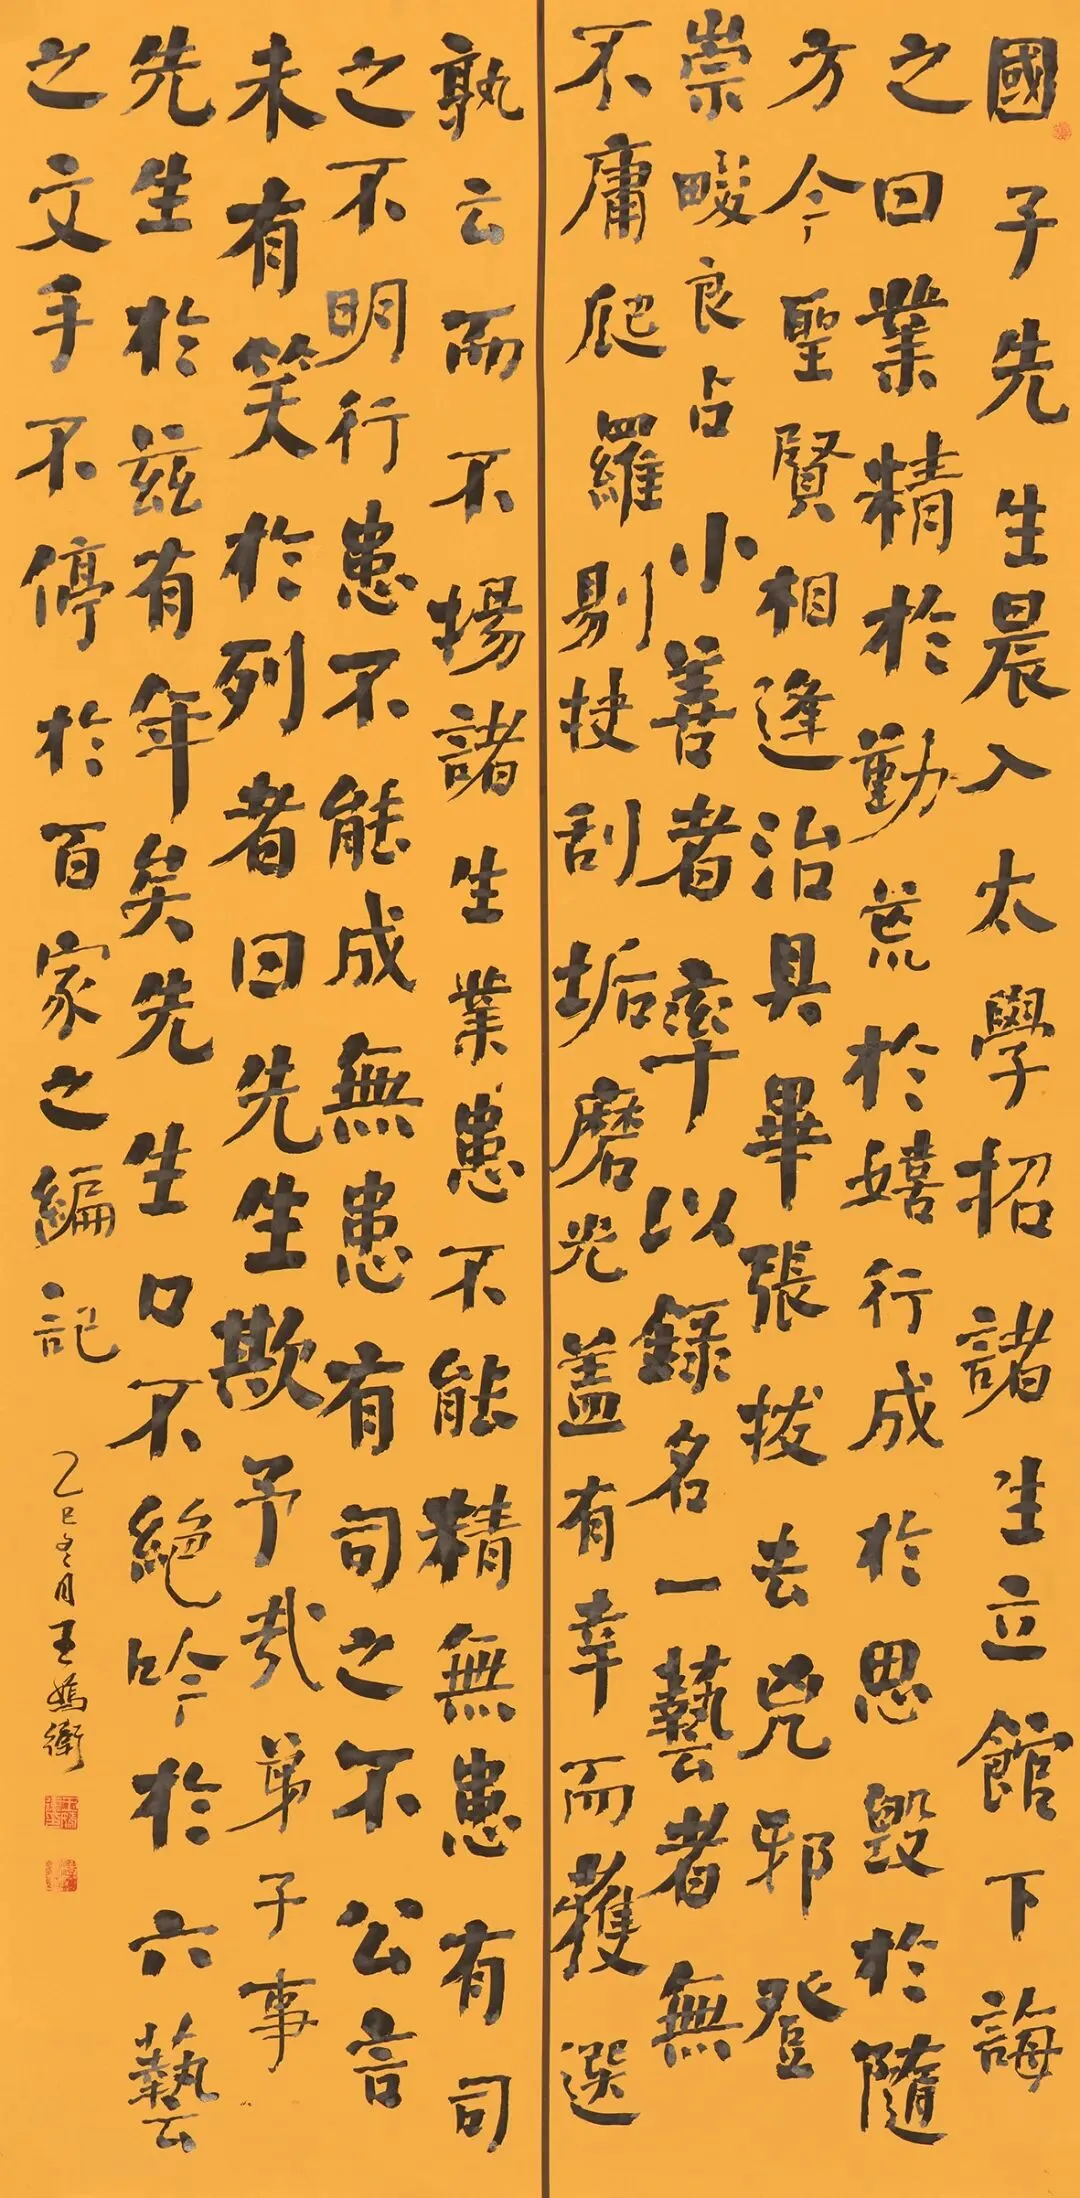 國子先生晨入太學招諸生立館下誨
之曰業精於勤荒於嬉行成於思毀於隨
方今聖賢相逢治具畢張拔去兇邪登
崇畯良占小善者率以錄名一藝者無
不庸爬羅剔抉刮垢磨光蓋有幸而獲選
孰云而不揚諸生業患不能精無患有司
之不明行患不能成無患有司之不公言
未有笑於列者曰先生欺予哉弟子事
先生於茲有年矣先生口不絕吟於六藝
之文手不停於百家之編記
乙巳冬月王衛